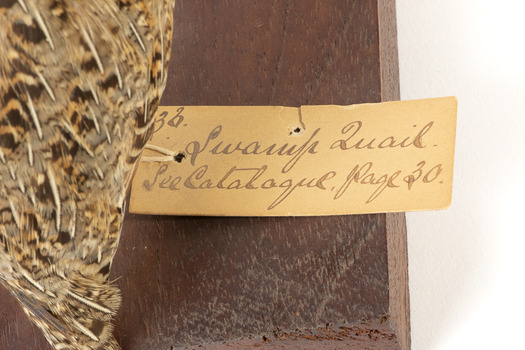 33.
Swamp Quail.
See Catalogue, Page 30.